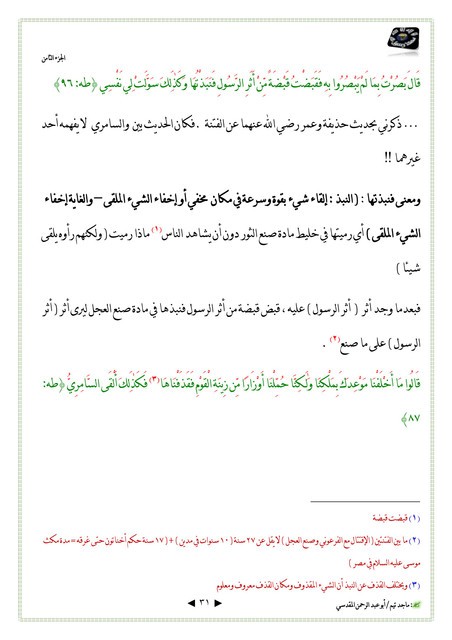 الجزء الثامن
قَالَ بَصُرْتُ بِمَا لَمْ يَبْصُرُوا بِهِ فَقَبَضْتُ قَبْضَةً مِّنْ أَثَرِ الرَّسُولِ فَنَبَذْتُهَا وَكَذَلِكَ سَوَّلَتْ لِي نَفْسِي ﴿طه: ٩٦﴾
... ذكرني بحديث حذيفة وعمر رضي الله عنهما عن الفتنة . فكان الحديث بين والسامري لا يفهمه أحد
غيرهما !!
ومعنى فنبذتها : ( النبذ : إلقاء شيء بقوة وسرعة في مكان مخفي أو إخفاء الشيء الملقى – والغاية إخفاء
الشيء الملقى ) أي رميتها في خليط مادة صنع الثور دون أن يشاهد الناس(١) ماذا رميت ( ولكنهم رأوه يلقى
شيئا )
فبعدما وجد أثر ( أثر الرسول ) عليه ، قبض قبضة من أثر الرسول فنبذها في مادة صنع العجل ليرى أثر ( أثر
الرسول ) على ما صنع(٢) .
قَالُوا مَا أَخْلَفْنَا مَوْعِدَكَ بِمَلْكِنَا وَلَٰكِنَّا حُمِّلْنَا أَوْزَارًا مِّن زِينَةِ الْقَوْمِ فَقَذَفْنَاهَا(٣) فَكَذَلِكَ أَلْقَى السَّامِرِيُّ ﴿طه:
٨٧﴾
(١) قبضت قبضة
(٢) ما بين الفتنتين ( الإقتتال مع الفرعوني وصنع العجل ) لا يقل عن ٢٧ سنة ( ١٠ سنوات في مدين ) + ( ١٧ سنة حكم أخناتون حتى غرقه = مدة مكث
موسى عليه السلام في مصر )
(٣) ويختلف القذف عن النبذ أن الشيء المقذوف ومكان القذف معروف ومعلوم
: ماجد تيم / أبو عبد الرحمن المقدسي
٣١